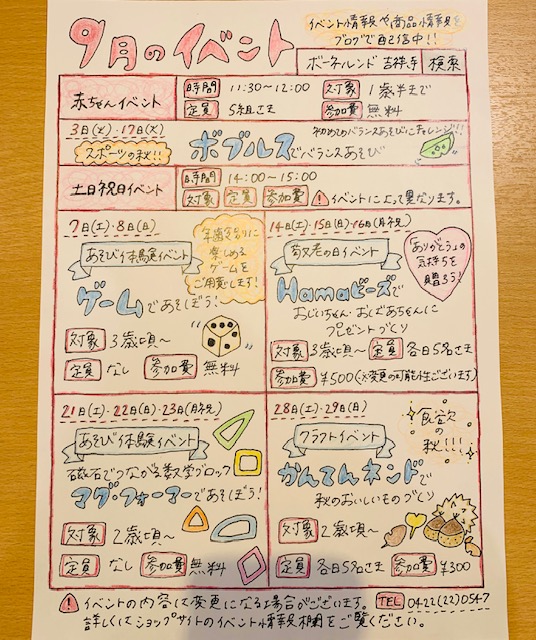 9月のイベント
イベント情報や商品情報を
ブログで配信中!!
ボーネルンド 吉祥寺 検索
赤ちゃんイベント
時間 11:30～12:00 対象 1歳半まで
定員 5組さま 参加費 無料
3日(火)・17日(火)
スポーツの秋!!
ボブルスでバランスあそび
初めてのバランスあそびにチャレンジ!!
土日祝日イベント
時間 14:00～15:00
対象 定員 参加費 イベントによって異なります。
7日(土)・8日(日)
あそび体験イベント
年齢別に
楽しめる
ゲームを
ご用意します!
ゲームであそぼう!
対象 3歳頃～
定員 なし 参加費 無料
14日(土)・15日(日)・16日(月祝)
敬老の日イベント
ありがとうの
気持ちを
贈ろう!
Hamaビーズで
おじいちゃん・おばあちゃんに
プレゼントづくり
対象 3歳頃～ 定員 各日5名さま
参加費 ¥500(※変更の可能性ございます)
21日(土)・22日(日)・23日(月祝)
あそび体験イベント
磁石でつながる数学ブロック
マグ・フォーマーであそぼう!
対象 2歳頃～
定員 なし 参加費 無料
28日(土)・29日(日)
クラフトイベント
食欲
の
秋!!!
かんてんネンドで
秋のおいしいものづくり
対象 2歳頃～
定員 各日5名さま 参加費 ¥300
イベントの内容は変更になる場合がございます。
TEL 0422(22)0547
詳しくはショップサイトのイベント情報欄をご覧ください。